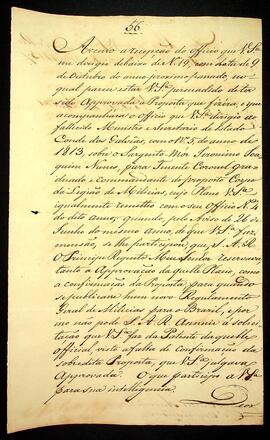 56
Accuso a recepção do officio que V.S.ª
me dirigio debaixo de N.º 19, com data de 9
de Outubro do anno proximo passado, no
qual parece estar V.S.ª persuadido de ter
sido Approvada a Proposta que fizera, e que
acompanhára o Officio que V.S.ª dirigio ao
fallecido Ministro e Secretario de Estado
Conde das Galvêas, com o N.º 5, do anno de
1813, sobre o Sargento Mor Jeronimo Joa
quim Nunes, para Tenente Coronel Gra
duado e commandante do proposto Corpo
da Legião de Milicias, cujo Plano V.S.ª
igualmente remetteo com o seu Officio N.º 3
do dito anno; quando, pelo Aviso de 26 de
Junho do mesmo Anno, de que V.S.ª faz
menção, se lhe participou, que S. A. R.
O Principe Regente Meu Senhor reservava
tanto a Approvação daquelle Plano, como
a confirmação da Proposta, para quando
se publicare hum novo Regulamento
Geral de Milicias para o Brazil, e por
isso não pode S. A. R. Annuir á solici
tação que V.S.ª faz da Patente daquelle
official, visto a falta de confirmação da
sobredita Proposta, que V.S.ª julgava
Approvada. O que participo a V.S.ª
para sua intelligencia.
Deos